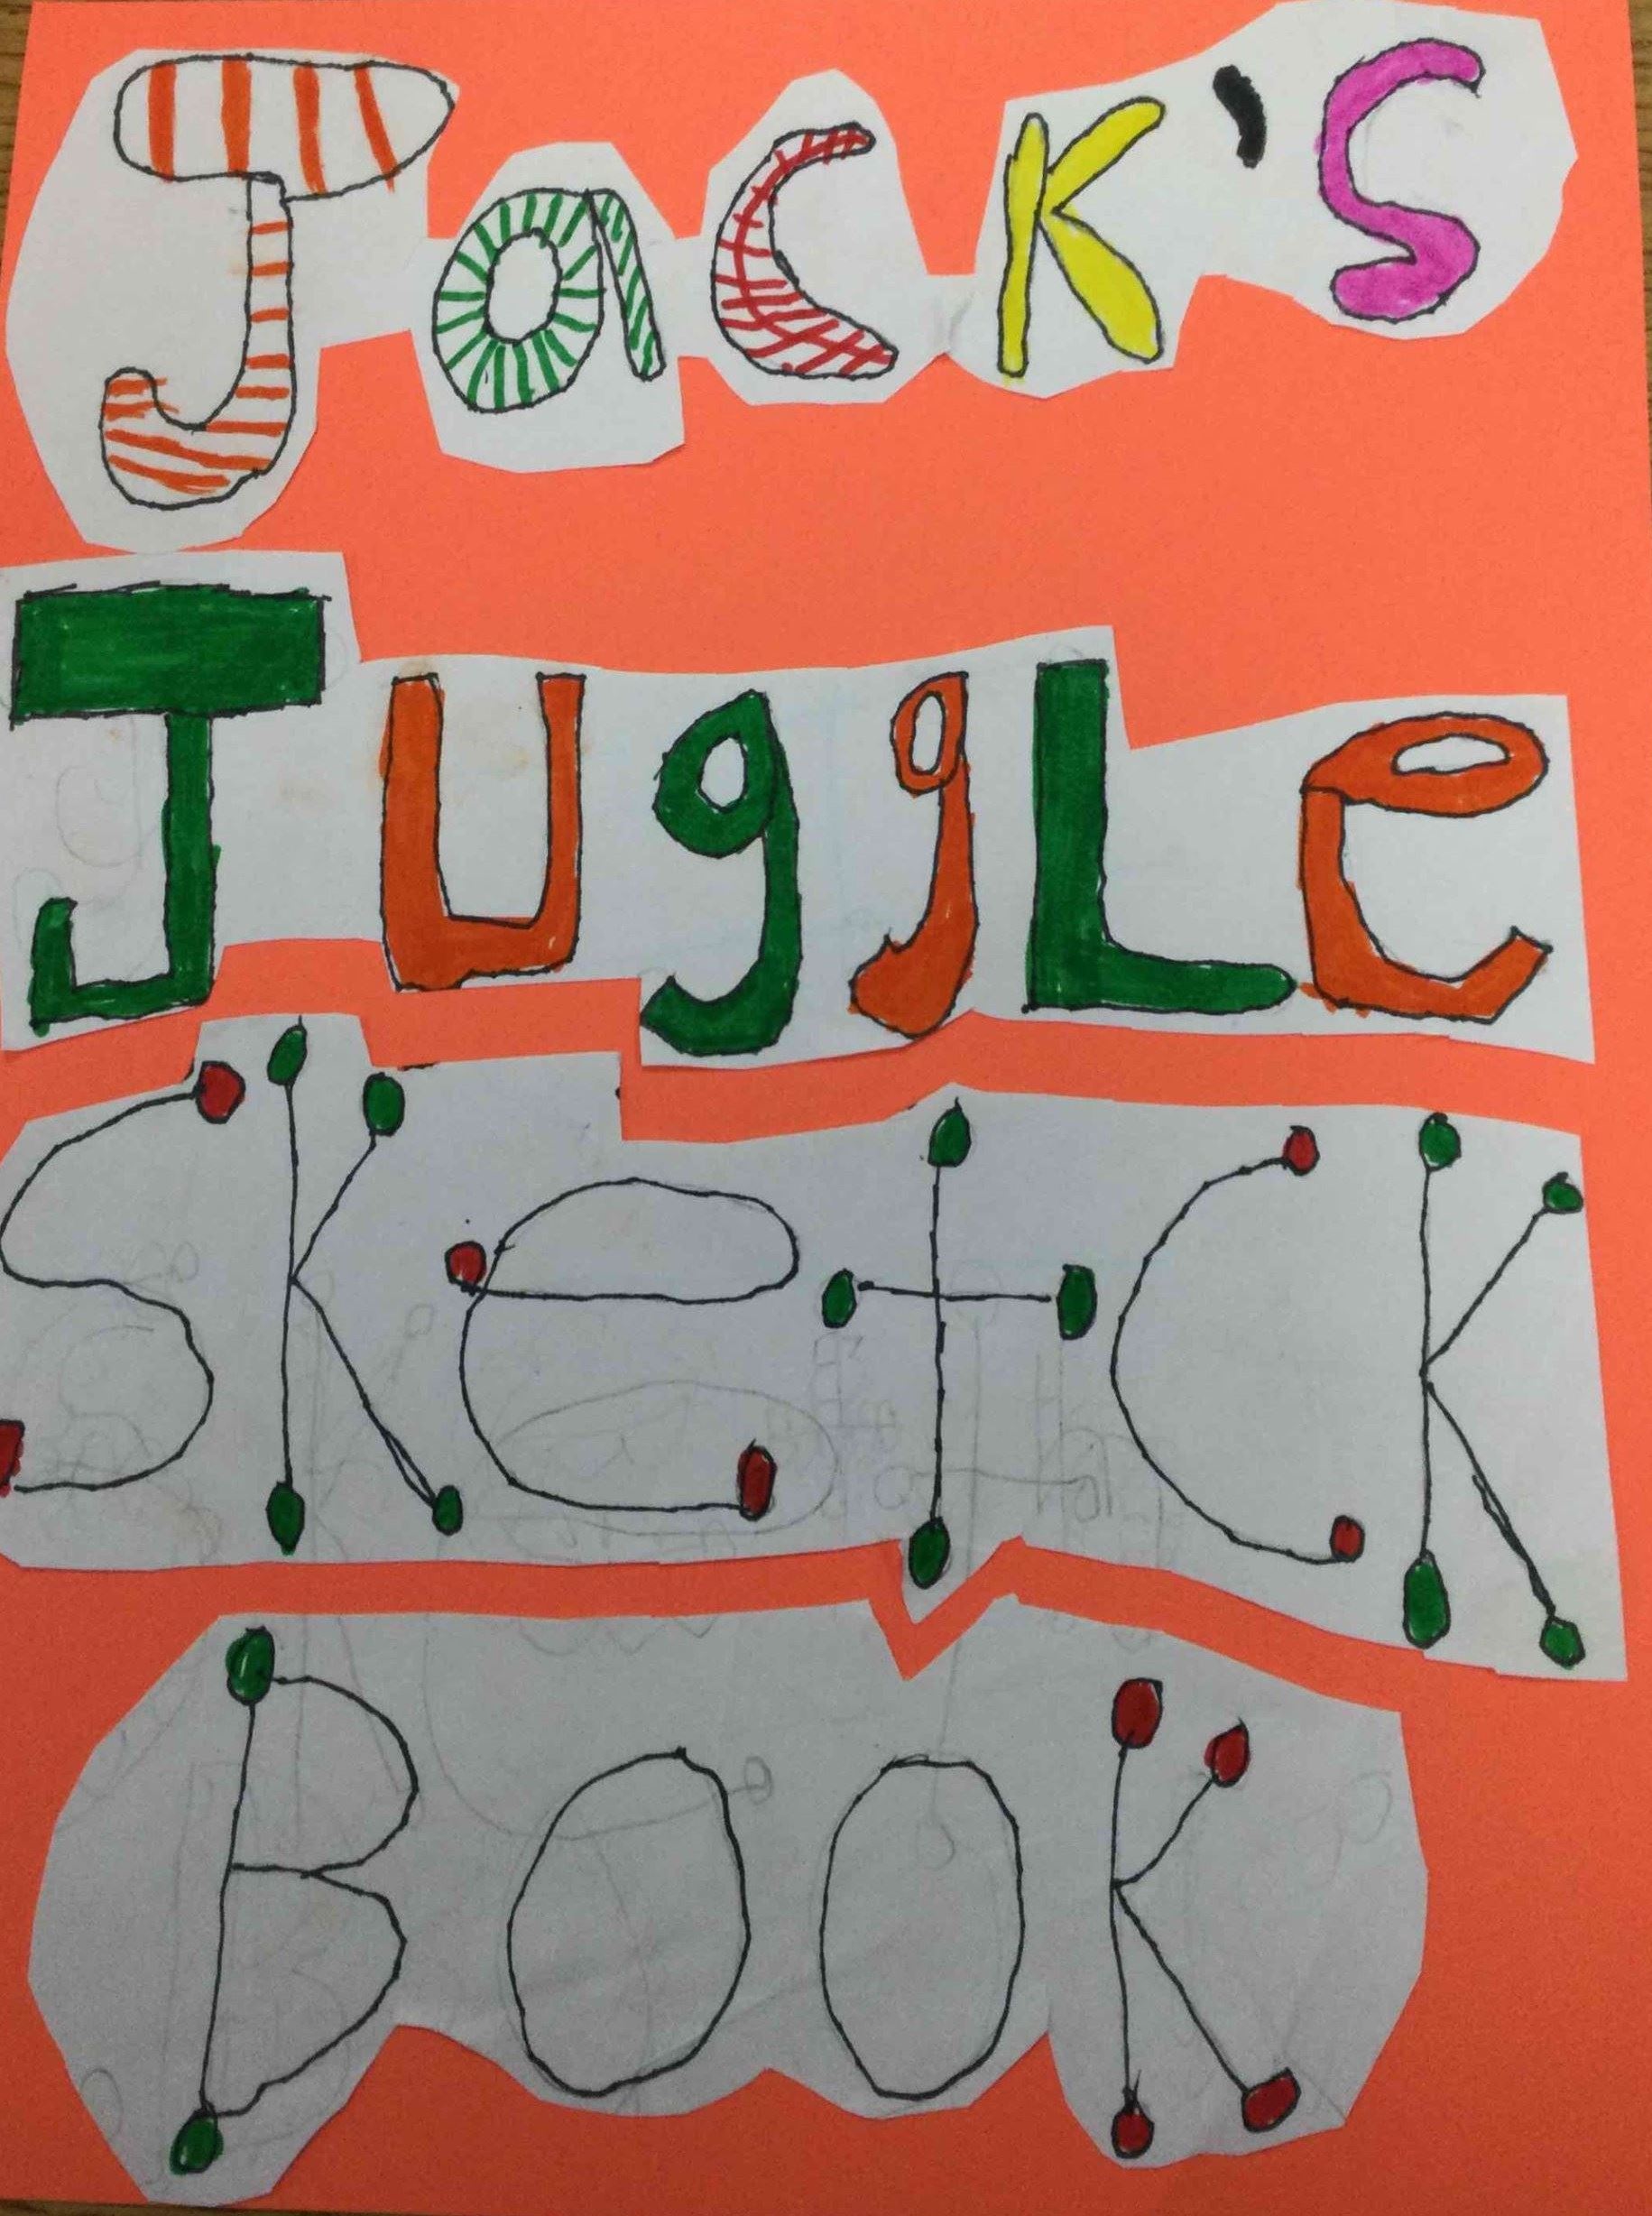 Jack's
JuggLe
SketcK
BOOK